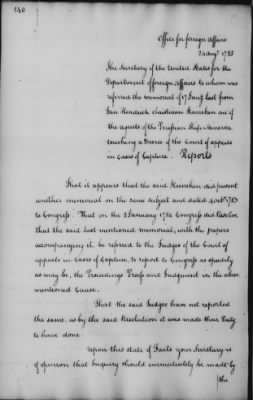 146
Office for foreign Affairs
24 Augt 1785
The Secretary of the United States for the
Department of foreign Affairs to whom was
referred the memorial of 17 Jany last from
Jan Hendrick Christiaan Heineken one of
the agents of the Prussian Ship Minerva
touching a Decree of the Court of appeals
in Cases of Capture. Reports
That it appears that the said Heineken did present
another memorial on the same Subject and dated 4 Octr 1783
to Congress. That on the 8 January 1784 Congress did Resolve
that the said last mentioned memorial, with the papers
accompanying it be referred to the Judges of the Court of
appeals in Cases of Capture, to report to Congress as speedily
as may be, the Proceedings Proofs and Judgment in the above
mentioned Cause.
That the said Judges have not reported
the same, as by the said Resolution it was made their Duty
to have done.
Upon this state of Facts your Secretary is
of opinion that Enquiry should immediately be made by
the